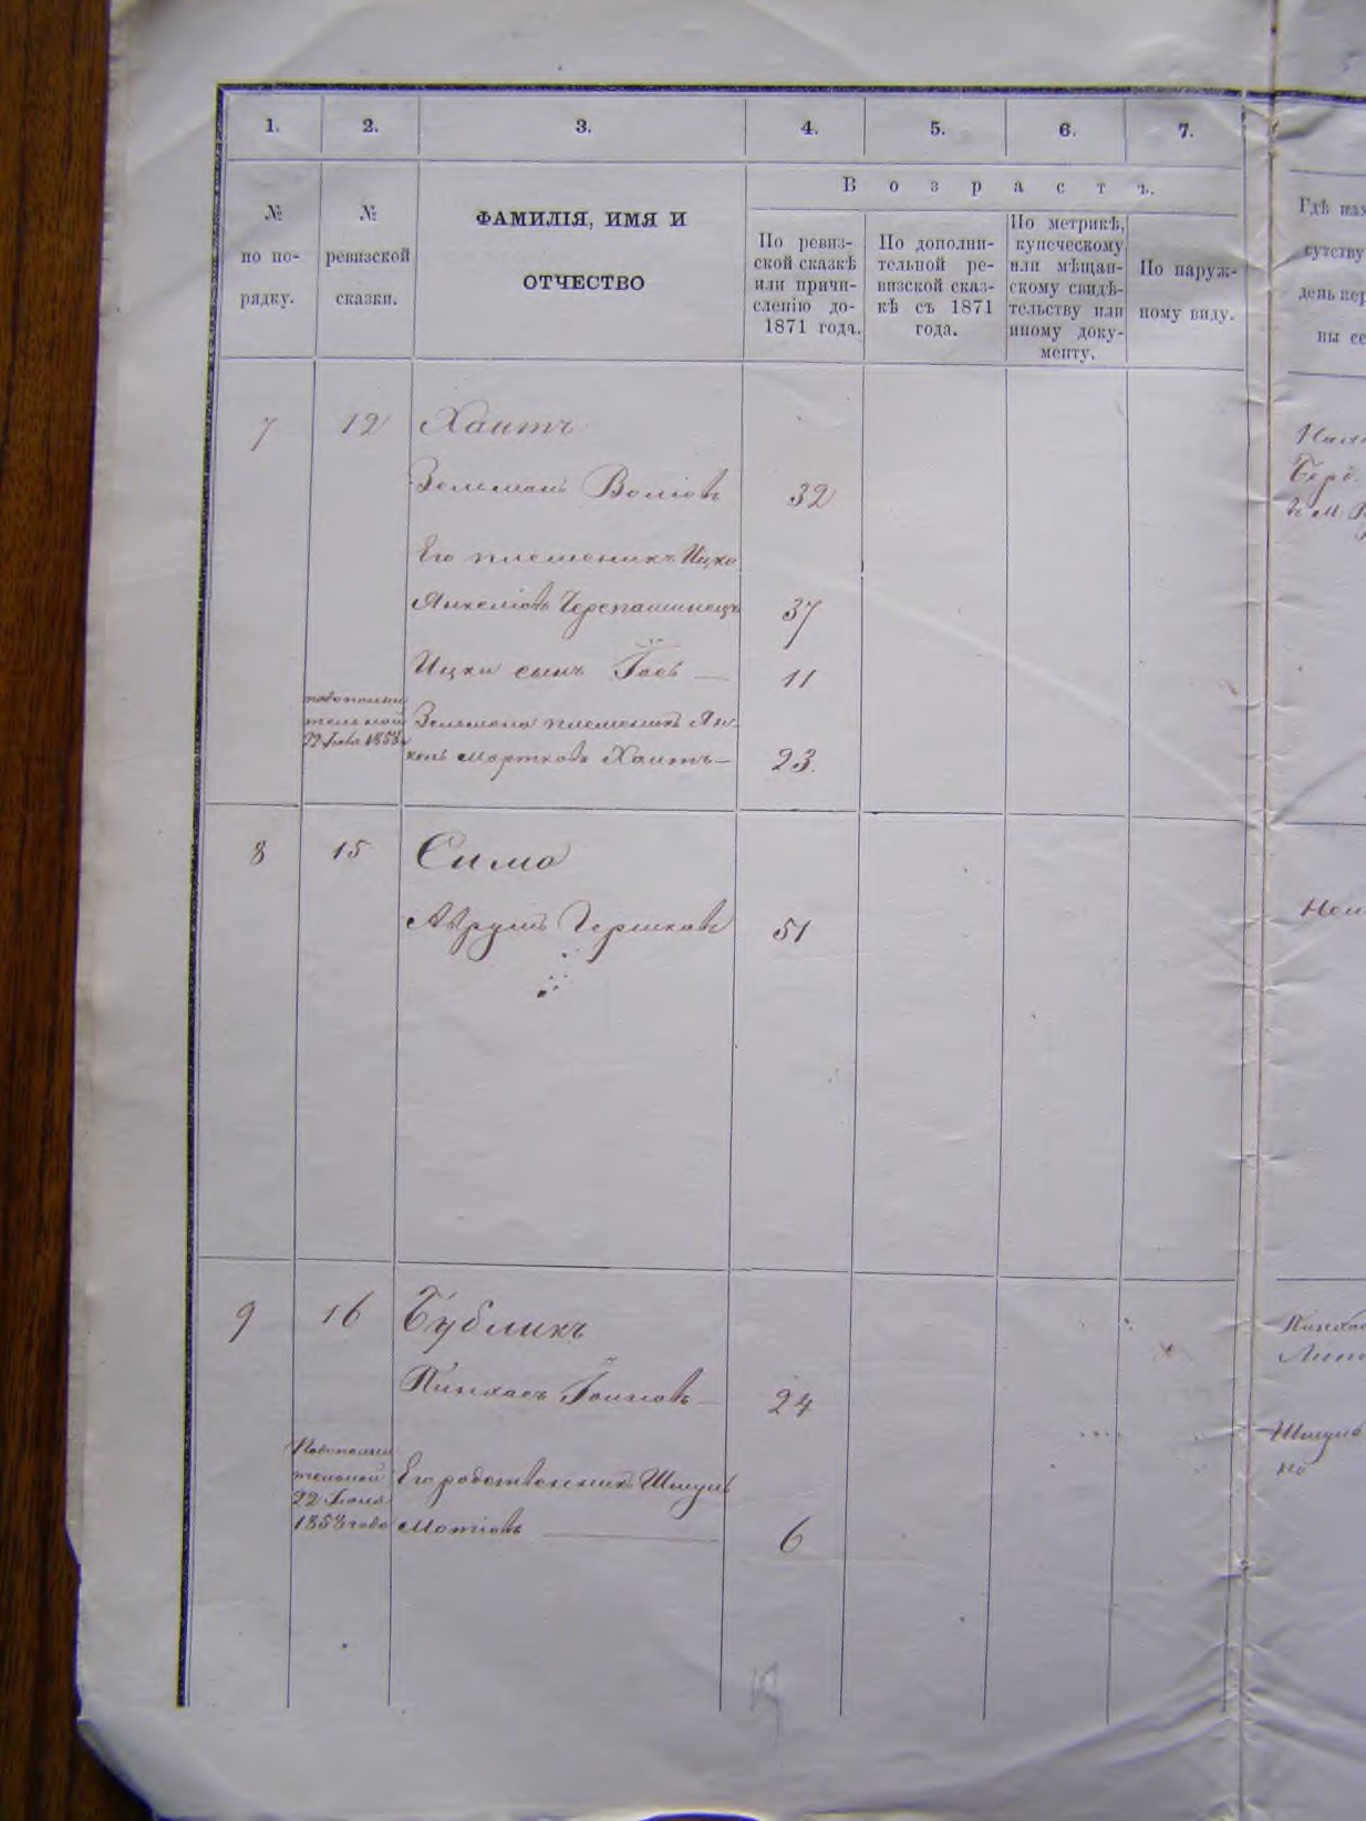 1. 2. 3. 4. 5. 6. 7.
В о з р а с т ъ.
№ по по-рядку.
№ ревизской сказки.
ФАМИЛІЯ, ИМЯ И
ОТЧЕСТВО
По ревиз-
ской сказкѣ
или причи-
сленію до-
1871 года.
По дополни-
тельной ре-
визской сказ-
кѣ съ 1871
года.
По метрикѣ,
купеческому
или мѣщан-
скому свидѣ-
тельству или
иному доку-
менту.
По наруж-
ному виду.
Гдѣ нах
сутству
день пер
вы се
7 12 Хаитъ
Зельманъ Волiовъ 32
Его племеникъ Ицко
Янкелiовъ Черепашинецъ 37
Ицки сынъ Іось — 11
подополни
тельной
22 Іюня 1858
Зельмана племеникъ Ян-
кель Мортковъ Хаитъ — 23.
Берд.
8 15 Симо
Аврумъ Гершковъ 51
9 16 Бубликъ
Пинхасъ Іоиновъ — 24
Подополни
тельной
22 Іюня
1858 года
Его родственникъ Шмуль
Мотіовъ — 6
Пинхас
Липо
Шмуль
но